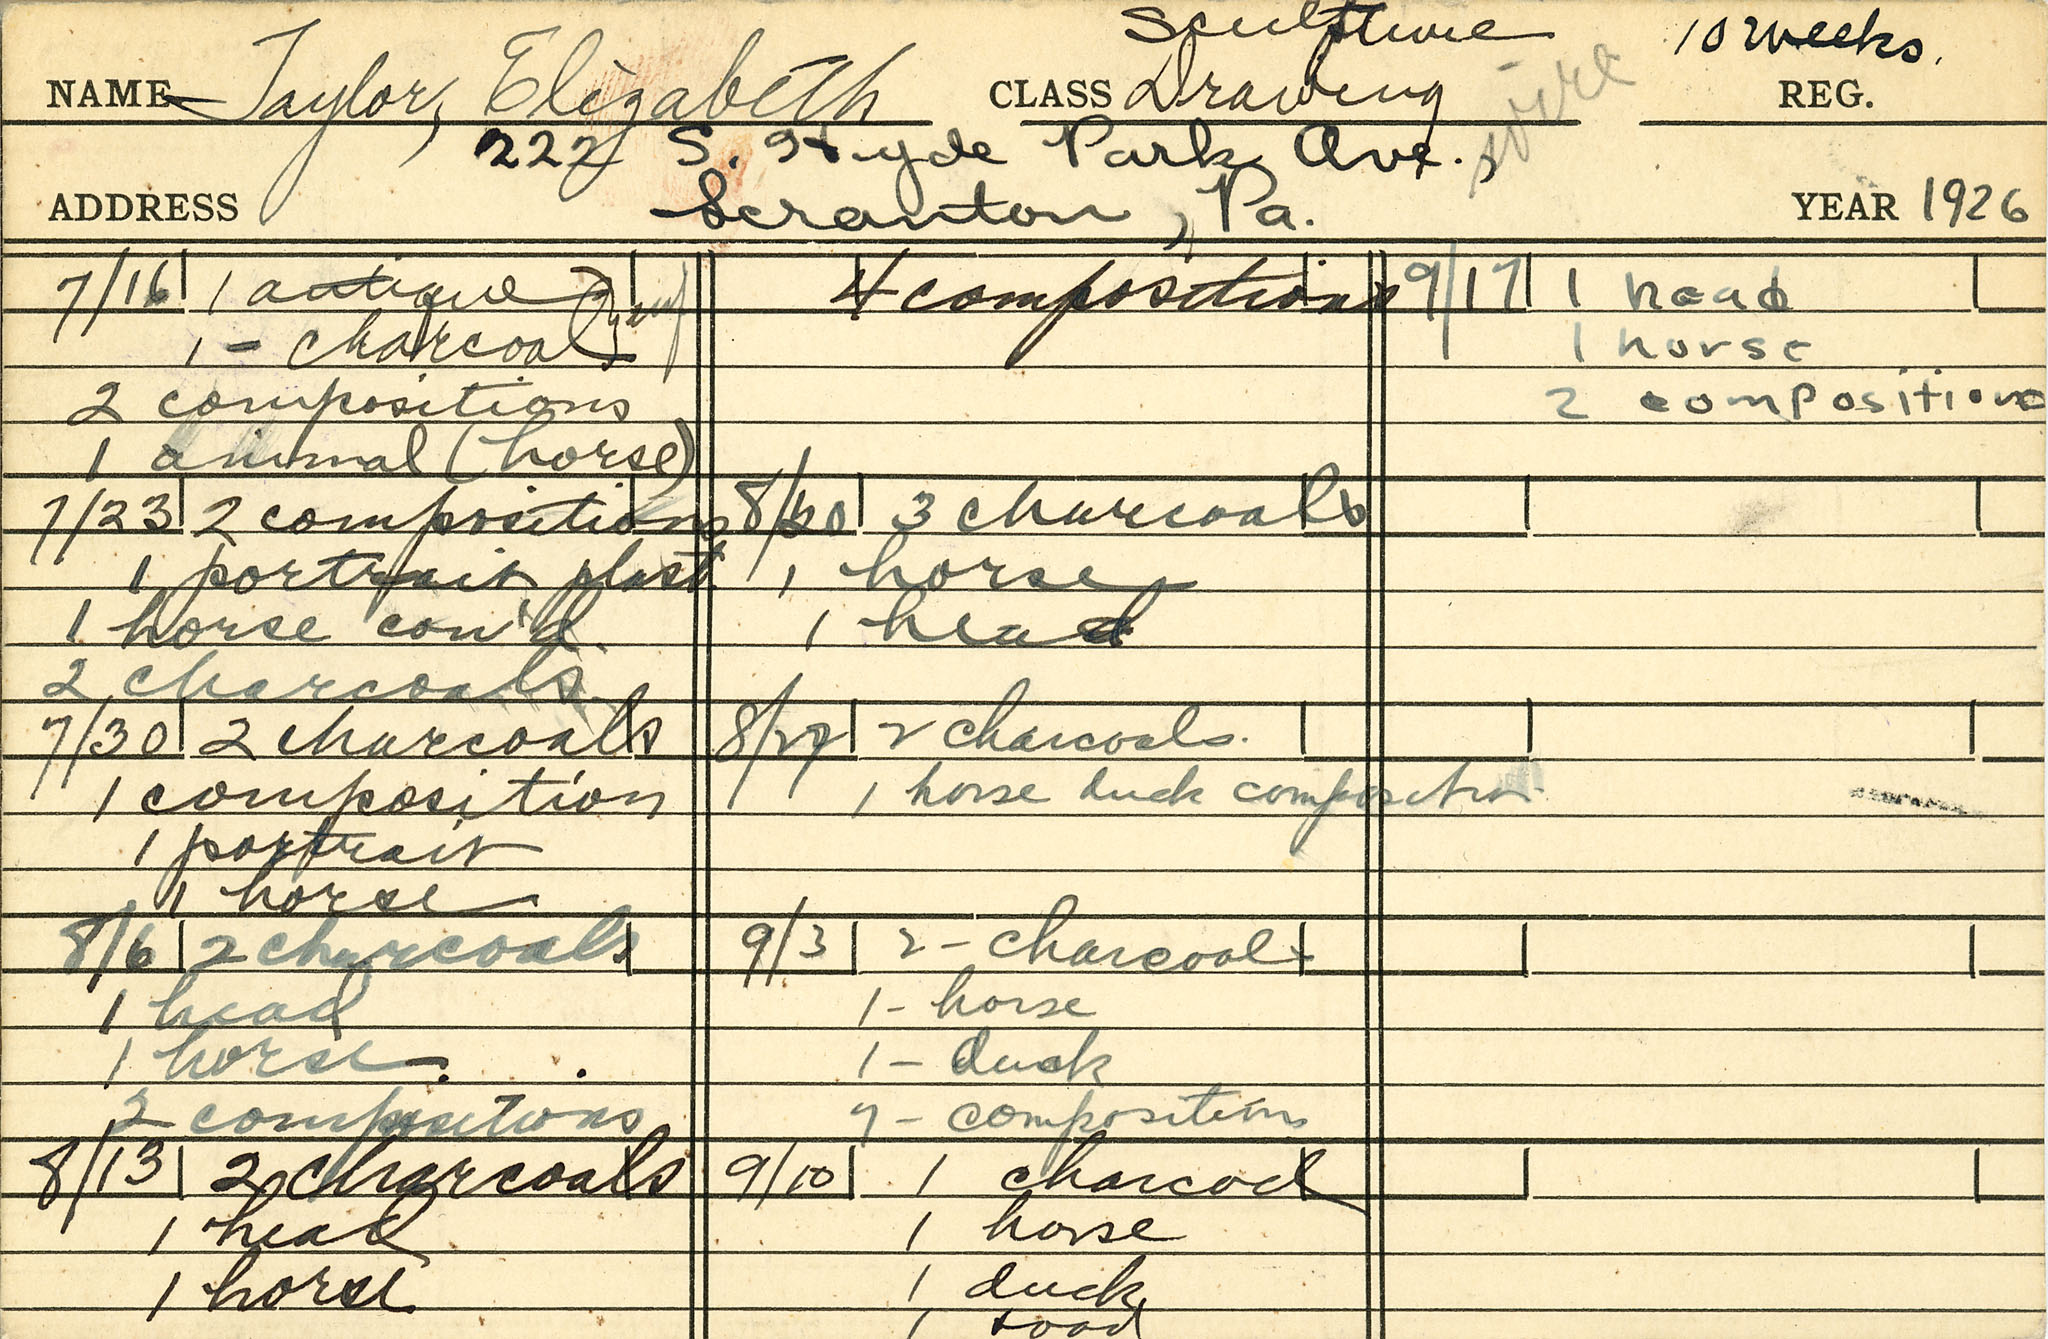 Sculpture 10 weeks.
NAME Taylor, Elizabeth CLASS Drawing REG.
222 S. Hyde Park Ave.,
ADDRESS Scranton, Pa. YEAR 1926
7/16 1 antique
1 - charcoal
2 compositions
1 animal (horse)
7/23 2 compositions
1 portrait plast
1 horse con'd.
2 charcoals
7/30 2 charcoals
1 composition
1 portrait
1 horse
8/6 2 charcoals
1 head
1 horse
2 compositions
8/13 2 charcoals
1 head
1 horse
4 compositions
8/20 3 charcoals
1 horse
1 head
8/27 2 charcoals.
1 horse duck composition
9/3 2 - charcoals
1 - horse
1 - duck
- compositions
9/10 1 charcoal
1 horse
1 duck
1 toad
9/17 1 head
1 horse
2 compositions